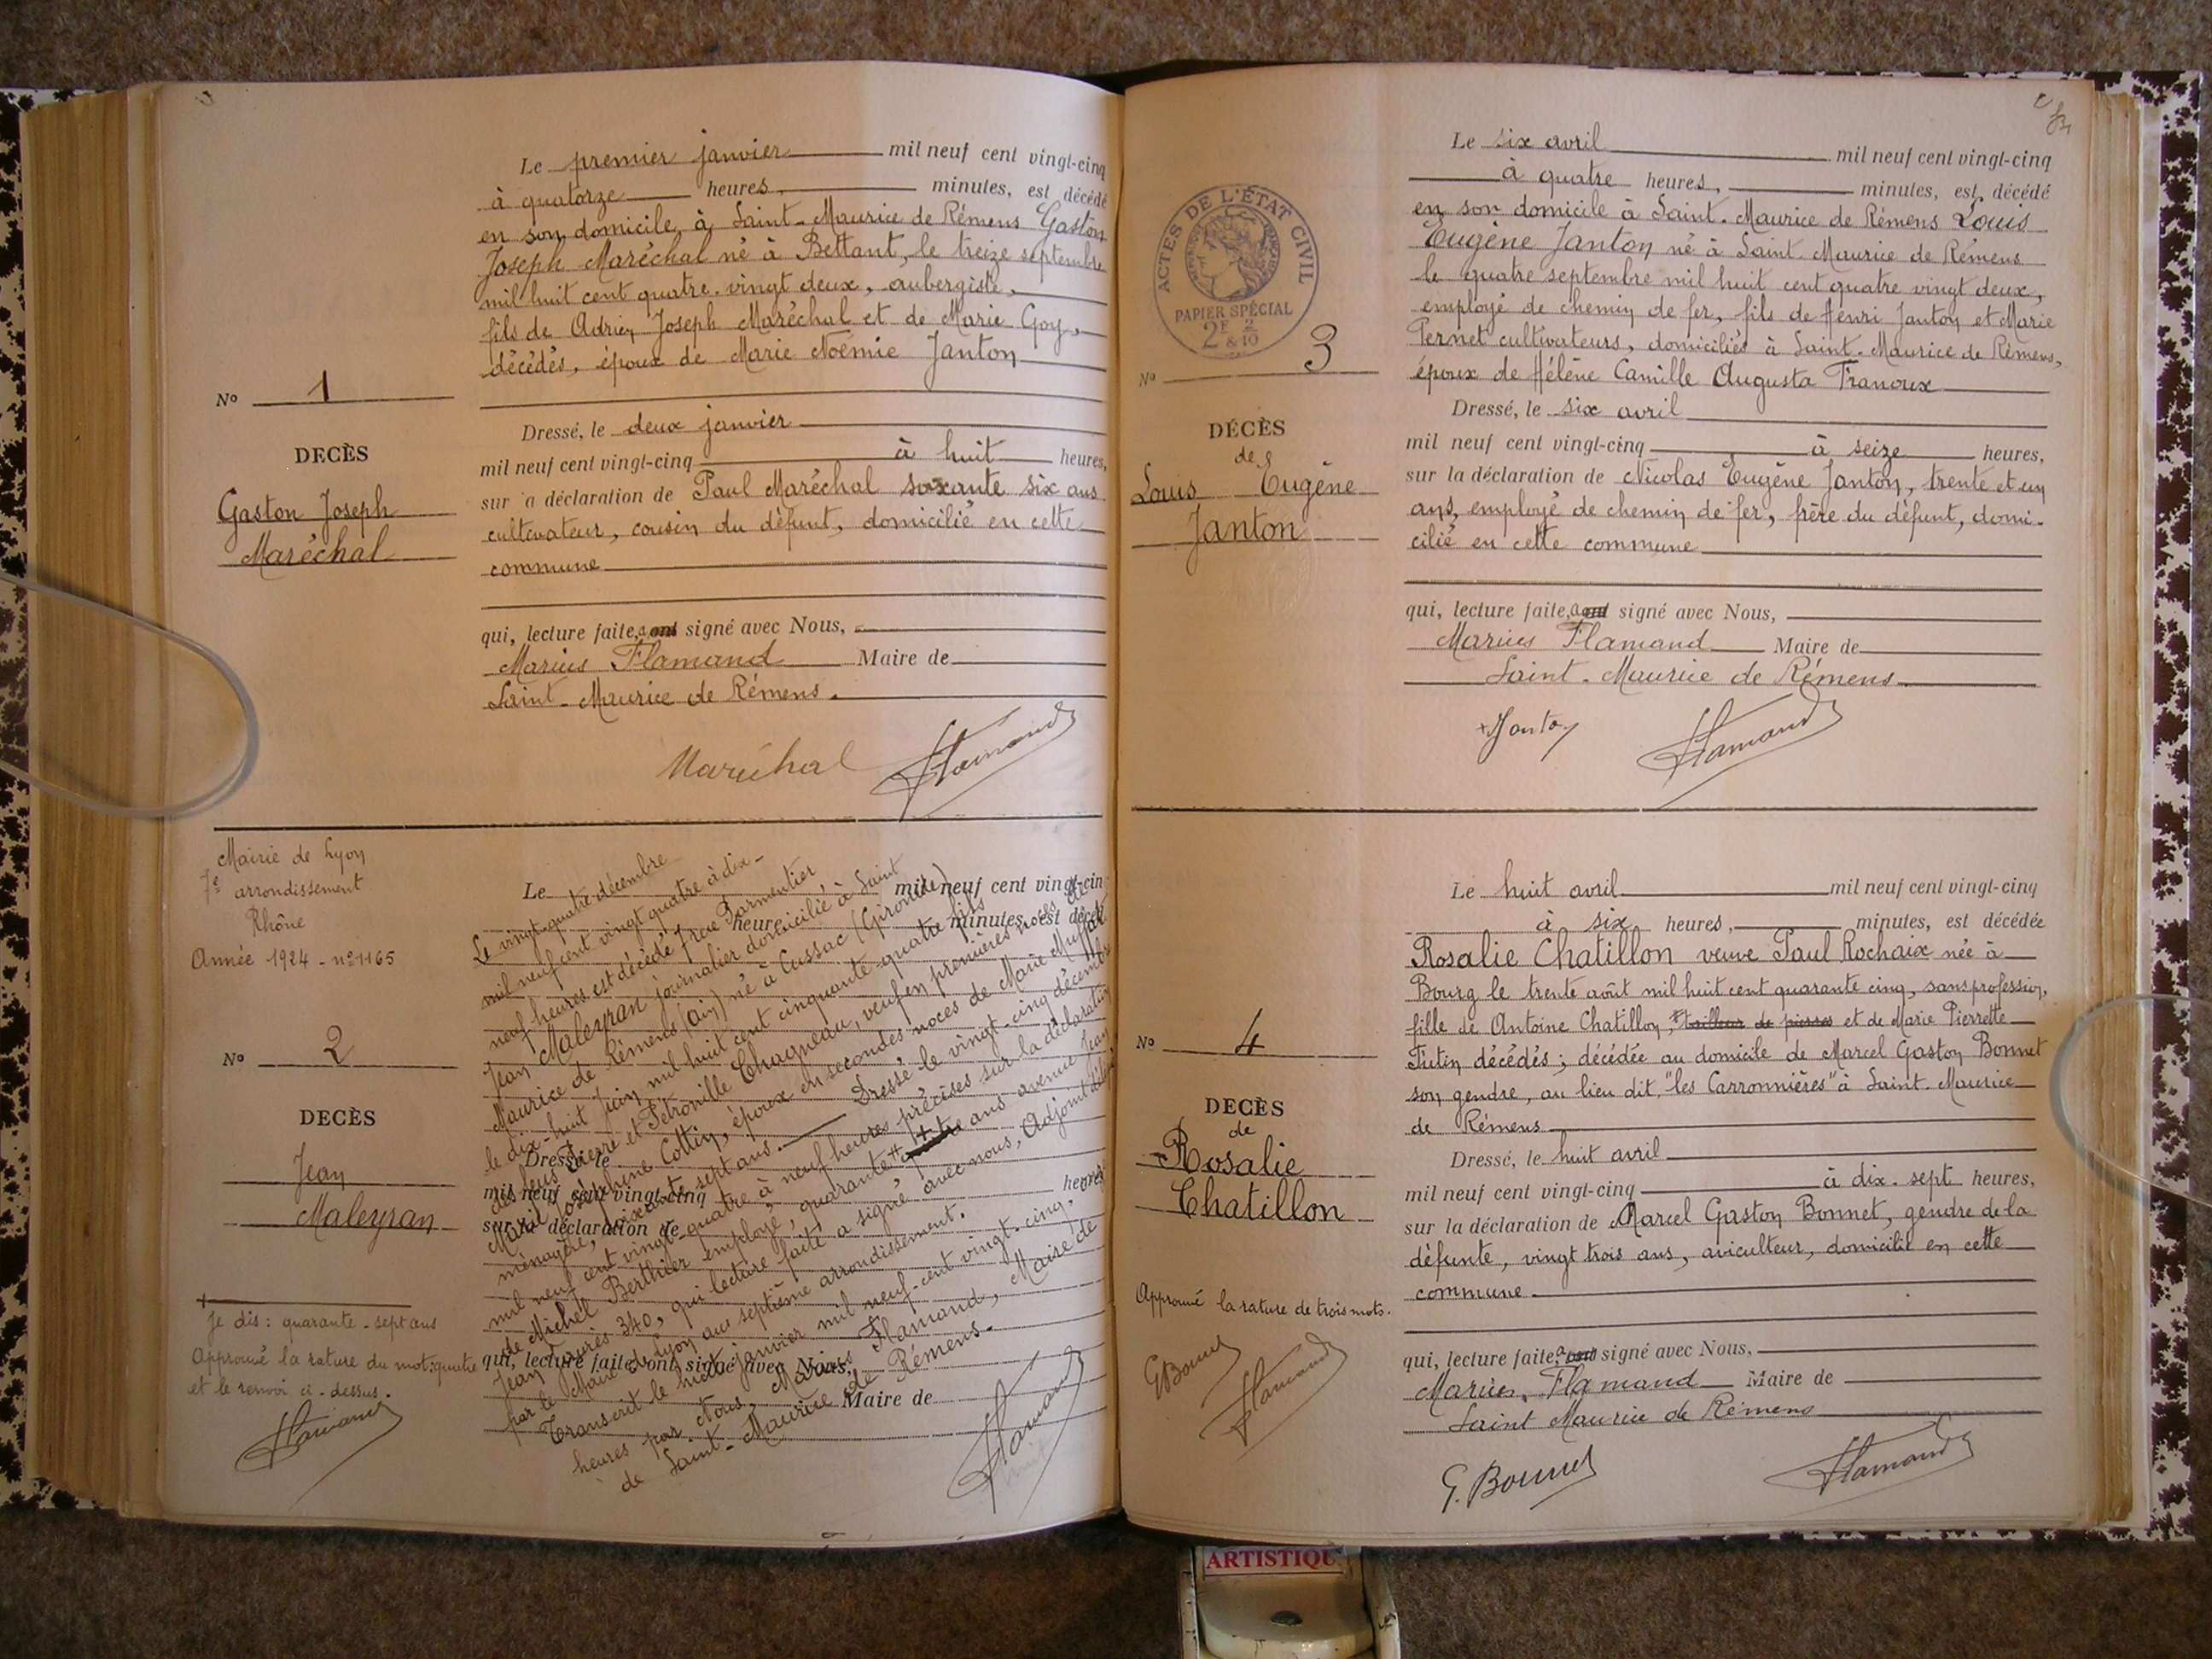 Le premier janvier mil neuf cent vingt-cinq
à quatorze heures, minutes, est décédé
en son domicile à Saint-Maurice de Rémens Gaston
Joseph Maréchal né à Bettant, le treize septembre
mil huit cent quatre-vingt deux, aubergiste,
fils de Adrien Joseph Maréchal et de Marie Goy,
décédés, époux de Marie Noémie Janton
No 1
DECÈS
Gaston Joseph
Maréchal
Dressé, le deux janvier
mil neuf cent vingt-cinq à huit heures,
sur a déclaration de Paul Maréchal soixante six ans
cultivateur, cousin du défunt, domicilié en cette
commune
qui, lecture faite, a ont signé avec Nous,
Marius Flamand Maire de
Saint-Maurice de Rémens.
Maréchal Flamand
Mairie de Lyon
7e arrondissement
Rhône
Année 1924 - no 1165
No 2
DECÈS
Jean
Maleyran
Je dis : quarante-sept ans
Approuvé la rature du mot: quatre
et le renvoi ci-dessus.
Flamand
Le mil neuf cent vingt-cin
heure minutes, est décéd
Dressé, le
mil neuf cent vingt-cinq heures
sur la déclaration de
qui, lecture faite, ont signé avec Nous,
Maire de
Le vingt-quatre décembre
mil neuf cent vingt quatre à dix-
neuf heures est décédé 7 rue Parmentier,
Jean Maleyran journalier domicilié à Saint
Maurice de Rémens (Ain) né à Cussac (Gironde)
le dix-huit Juin mil huit cent cinquante quatre fils
des feus Pierre et Pétronille Chagneau, veuf en premières noces de
Marie Joséphine Cottin, époux en secondes noces de Marie
ménagère, soixante sept ans. Dressé le vingt-cinq décembre
mil neuf cent vingt quatre à neuf heures précises sur la déclaration
de Michel Berthier employé, quarante quatre ans avenue Jean
Jean Jaurès 340, qui lecture faite a signé avec nous, Adjoint
par le Maire de Lyon au septième arrondissement.
Transcrit le huit janvier mil neuf-cent vingt-cinq,
heures par Nous, Marius Flamand, Maire de
de Saint-Maurice de Rémens.
Flamand
ACTES DE L'ÉTAT CIVIL
PAPIER SPÉCIAL
2F 2/10
No 3
DÉCÈS
de
Louis Eugène
Janton
Le six avril mil neuf cent vingt-cinq
à quatre heures, minutes, est décédé
en son domicile à Saint-Maurice de Rémens Louis
Eugène Janton né à Saint-Maurice de Rémens
le quatre septembre mil huit cent quatre vingt deux,
employé de chemin de fer, fils de Henri Janton et Marie
Pernet cultivateurs, domiciliés à Saint-Maurice de Rémens,
époux de Hélène Camille Augusta Franoux
Dressé, le six avril
mil neuf cent vingt-cinq à seize heures,
sur la déclaration de Nicolas Eugène Janton, trente et un
ans, employé de chemin de fer, frère du défunt, domi-
cilié en cette commune
qui, lecture faite, a ont signé avec Nous,
Marius Flamand Maire de
Saint-Maurice de Rémens.
Janton Flamand
Le huit avril mil neuf cent vingt-cinq
à six heures, minutes, est décédée
Rosalie Chatillon veuve Paul Rochaix née à
Bourg le trente août mil huit cent quarante cinq, sans profession,
fille de Antoine Chatillon, tailleur de pierres et de Marie Pierrette
Putin décédés; décédée au domicile de Marcel Gaston Bonnet
son gendre, au lieu dit "les Carronnières" à Saint-Maurice
de Rémens
No 4
DECÈS
de
Rosalie
Chatillon
Approuvé la rature de trois mots.
G Bonnet
Flamand
Dressé, le huit avril
mil neuf cent vingt-cinq à dix-sept heures,
sur la déclaration de Marcel Gaston Bonnet, gendre de la
défunte, vingt trois ans, aviculteur, domicilié en cette
commune
qui, lecture faite, a ont signé avec Nous,
Marius Flamand Maire de
Saint Maurice de Rémens
G. Bonnet Flamand
ARTISTIQU